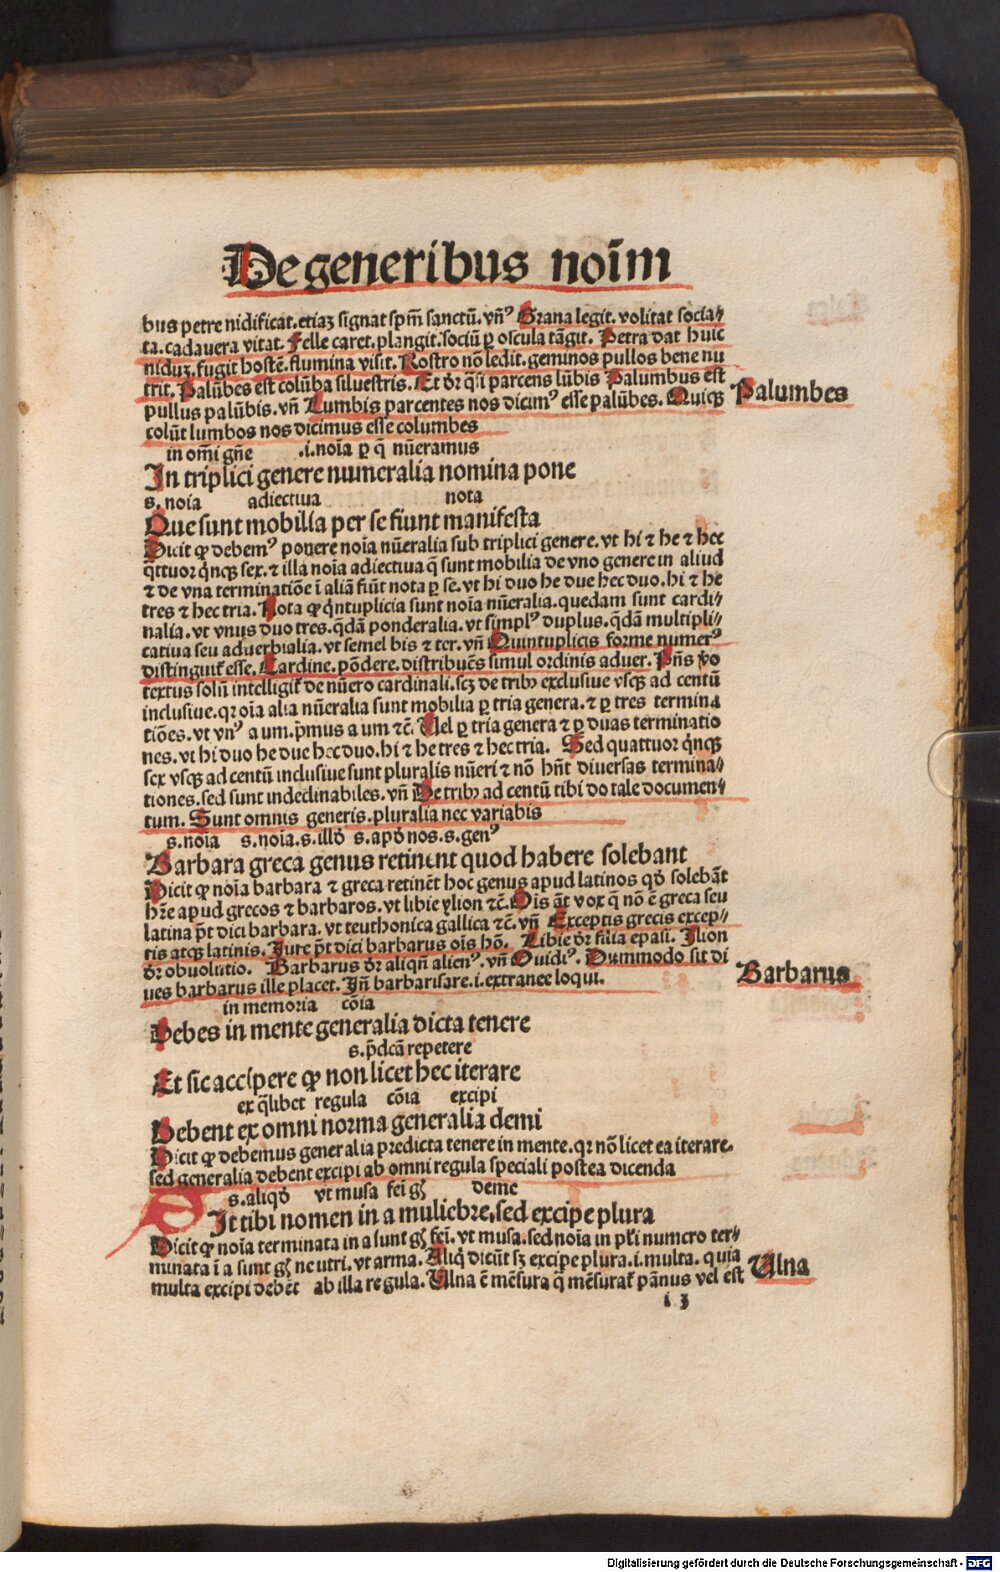 De generibus noīm
bus petre nidificat. etiaꝫ signat sp̄m sanctū. vn̄⁹ Grana legit. volitat socia⸗
ta. cadauera vitat. Felle caret. plangit. sociū ꝑ oscula tāgit. Petra dat huic
niduꝫ. fugit hostē. flumina visit. Rostro nō ledit. geminos pullos bene nu
trit. Palūbes est colūba siluestris. Et dr̄ q̄si parcens lūbis Palumbus est
Palumbes
pullus palūbis. vn̄ Lumbis parcentes nos dicim⁹ esse palūbes. Quiqꝫ
colūt lumbos nos dicimus esse columbes
in om̄i gn̄e .i. noīa ꝑ q̄ nūeramus
In triplici genere numeralia nomina pone
s. noīa adiectiua nota
Que sunt mobilia per se fiunt manifesta
Dicit ꝙ debem⁹ ponere noīa nūeralia sub triplici genere. vt hi ⁊ he ⁊ hec
q̄ttuor q̄nqꝫ sex. ⁊ illa noīa adiectiua q̄ sunt mobilia de vno genere in aliud
⁊ de vna terminatiōe ī aliā fiūt nota ꝑ se. vt hi duo he due hec duo. hi ⁊ he
tres ⁊ hec tria. Nota ꝙ q̄ntuplicia sunt noīa nūeralia. quedam sunt cardi⸗
nalia. vt vnus duo tres. q̄dā ponderalia. vt simpl⁹ duplus. q̄dā multipli⸗
catiua seu aduerbialia. vt semel bis ⁊ ter. vn̄ Quintuplicis forme numer⁹
distinguit᷑ esse. Cardine. pōdere. distribuēs simul ordinis aduer. Pn̄s v̄o
textus solū intelligit᷑ de nūero cardinali. scꝫ de tribꝫ exclusiue vsqꝫ ad centū
inclusiue. qꝛ oīa alia nūeralia sunt mobilia ꝑ tria genera. ⁊ ꝑ tres termina
tiōes. vt vn⁹ a um. p̄mus a um ⁊c̄. Uel ꝑ tria genera ⁊ ꝑ duas terminatio
nes. vt hi duo he due hec duo. hi ⁊ he tres ⁊ hec tria. Sed quattuor q̄nqꝫ
sex vsqꝫ ad centū inclusiue sunt pluralis nūeri ⁊ nō hn̄t diuersas termina⸗
tiones. sed sunt indeclinabiles. vn̄ De tribꝫ ad centū tibi do tale documen⸗
tum. Sunt omnis generis. pluralia nec variabis
s. noīa s. noīa. s. illō s. apō nos. s. gen⁹
Barbara greca genus retinent quod habere solebant
Dicit ꝙ noīa barbara ⁊ greca retinēt hoc genus apud latinos qō solebāt
hr̄e apud grecos ⁊ barbaros. vt libie ylion ⁊c̄. Oīs āt vox q̄ nō ē greca seu
latina p̄t dici barbara. vt teuthonica gallica ⁊c̄. vn̄ Exceptis grecis excep⸗
tis atqꝫ latinis. Iure p̄t dici barbarus oīs hō. Libie dr̄ filia epasi. Ilion
dr̄ obuolutio. Barbarus dr̄ aliqn̄ alien⁹. vn̄ Ouidi⁹. Dummodo sit di
Barbarus
ues barbarus ille placet. In̄ barbarisare. i. extranee loqui.
in memoria cōia
Debes in mente generalia dicta tenere
s. p̄dcā repetere
Et sic accipere ꝙ non licet hec iterare
ex q̄libet regula cōia excipi
Debent ex omni norma generalia demi
Dicit ꝙ debemus generalia predicta tenere in mente. qꝛ nō licet ea iterare.
sed generalia debent excipi ab omni regula speciali postea dicenda
s. aliqō vt musa fei gn̄s deme
Sit tibi nomen in a muliebre. sed excipe plura
Dicit ꝙ noīa terminata in a sunt gn̄s fei. vt musa. sed noīa in pl̄i numero ter⸗
minata ī a sunt gn̄s neutri. vt arma. Aliq̄ dicūt sꝫ excipe plura. i. multa. quia
multa excipi debēt ab illa regula. Ulna ē mēsura q̄ mēsurat᷑ pānus vel est
Ulna
i 3
Digitalisierung gefördert durch die Deutsche Forschungsgemeinschaft - DFG